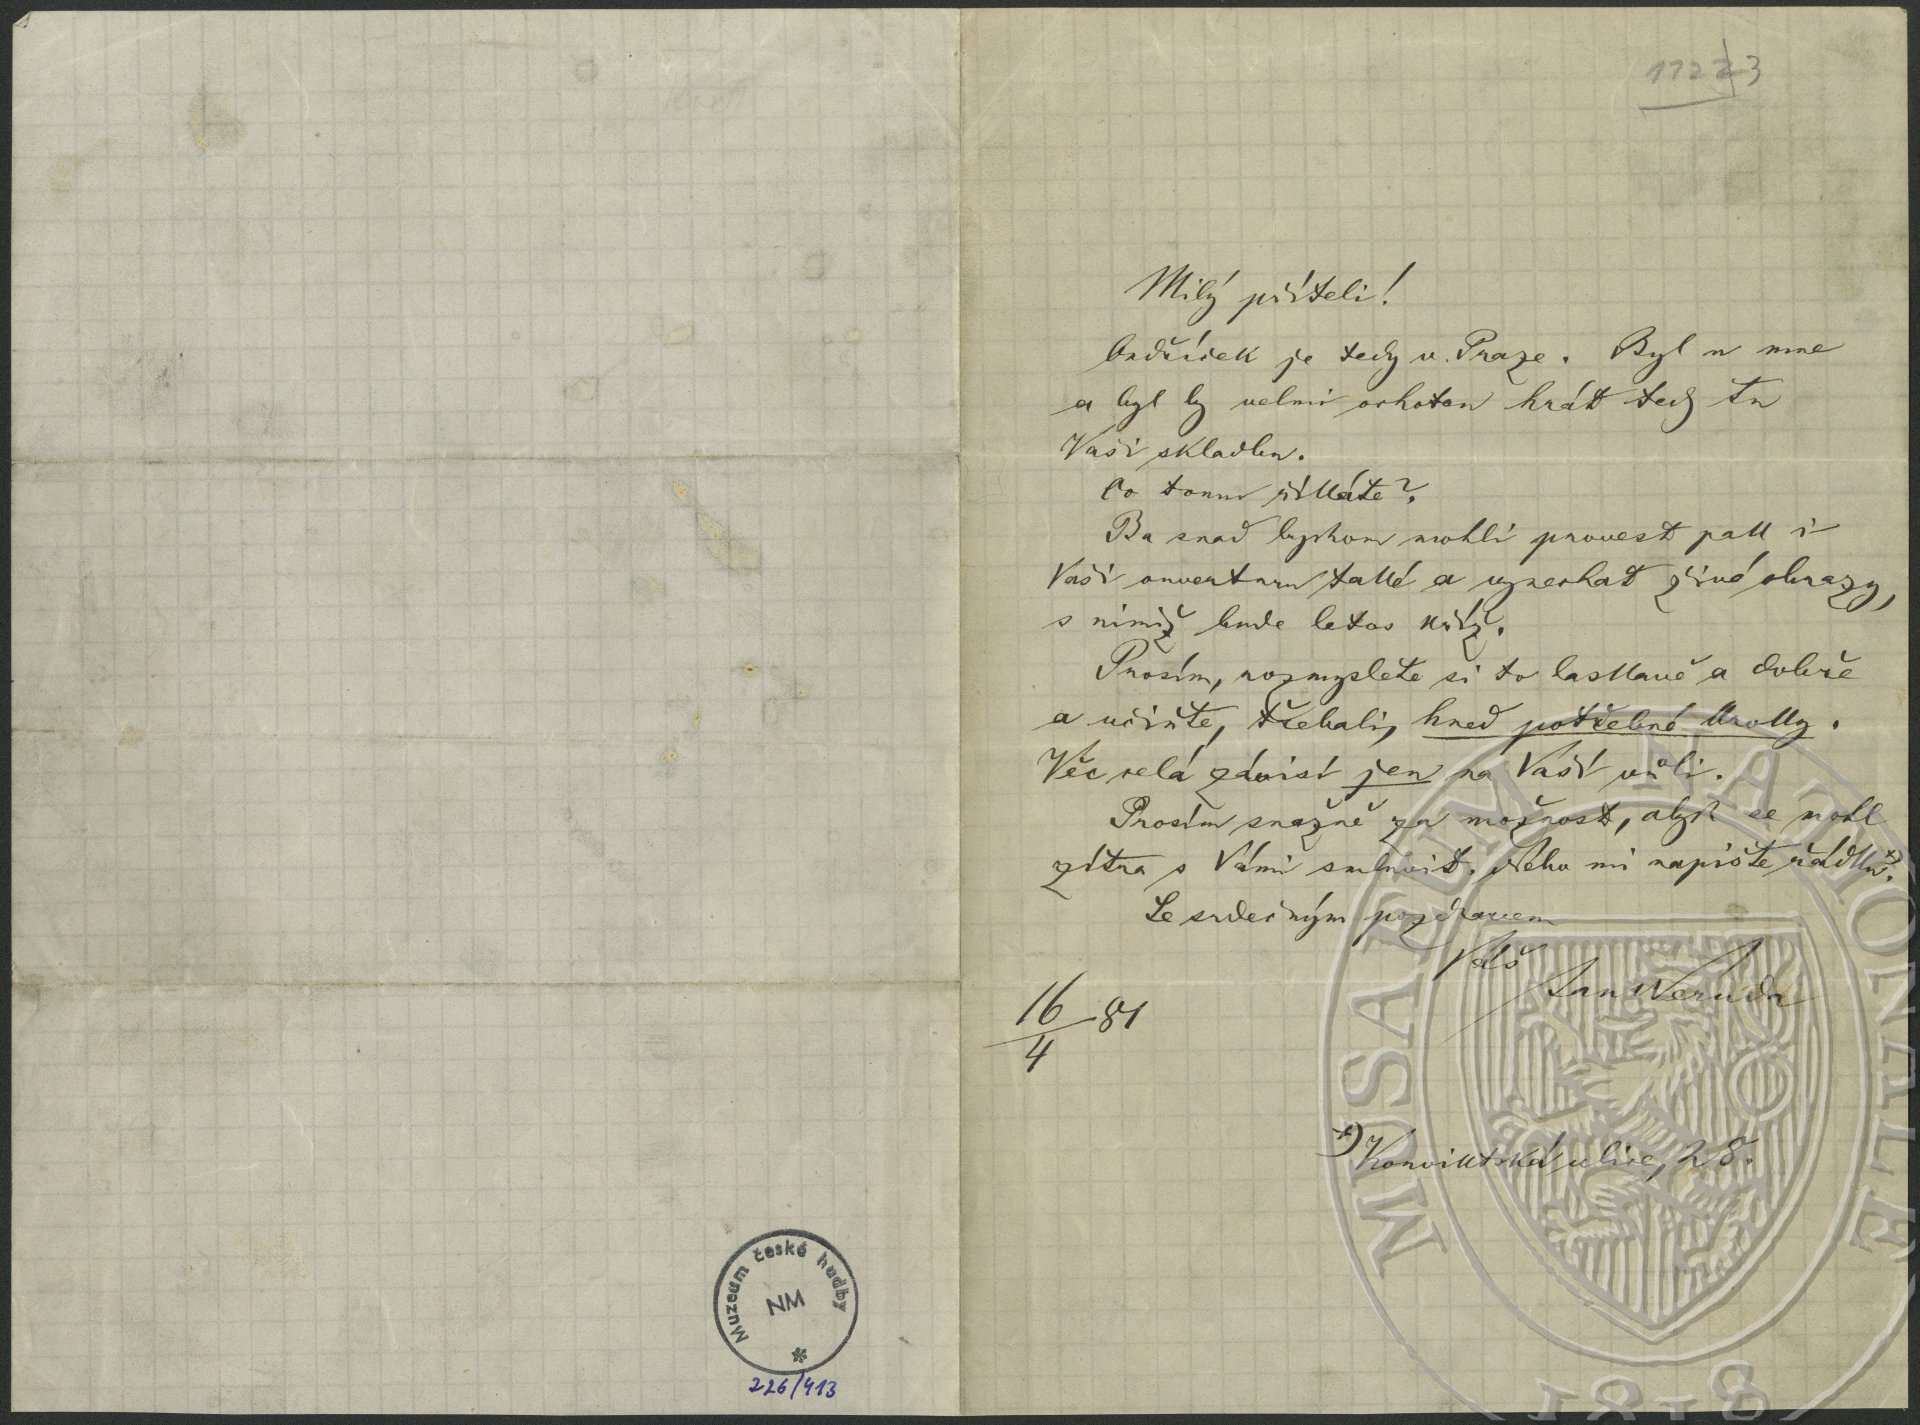 11223
Milý příteli!
Ondříček je tedy v Praze. Byl u mne
a byl by velmi ochoten hrát tedy tu
Vaši skladbu.
Co tomu říkáte?
Ba snad bychom mohli provest pak i
Vaši ouverturu také a vynechat živé obrazy,
s nimiž bude letos kříž.
Prosím, rozmyslete si to laskavě a dobře
a učiňte, třebali, hned potřebné kroky.
Věc celá závisí jen na Vaší vůli.
Prosím snažně za možnost, abych se mohl
zítra s Vámi smluvit. Nebo mi napište řádku*.
Se srdečným pozdravem
Váš
Jan Neruda
16/4 81
*) Konviktská ulice, 28.
Muzeum české hudby
NM
*
226/413
MUSAEUM NATIONALE
1818